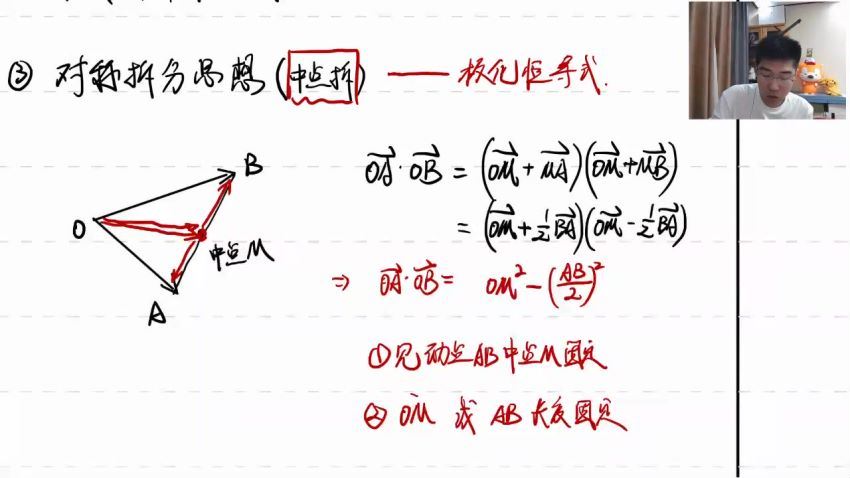 ③ 对称拆分思想(中点拆) —— 极化恒等式.
B
O
中点M
A
\overrightarrow{OA}·\overrightarrow{OB} = (\overrightarrow{OM}+\overrightarrow{MA})(\overrightarrow{OM}+\overrightarrow{MB})
= (\overrightarrow{OM}+\frac{1}{2}\overrightarrow{BA})(\overrightarrow{OM}-\frac{1}{2}\overrightarrow{BA})
⇒ \overrightarrow{OA}·\overrightarrow{OB} = OM²-(\frac{AB}{2})²
①见动点AB中点M固定
② OM 或 AB 长度固定